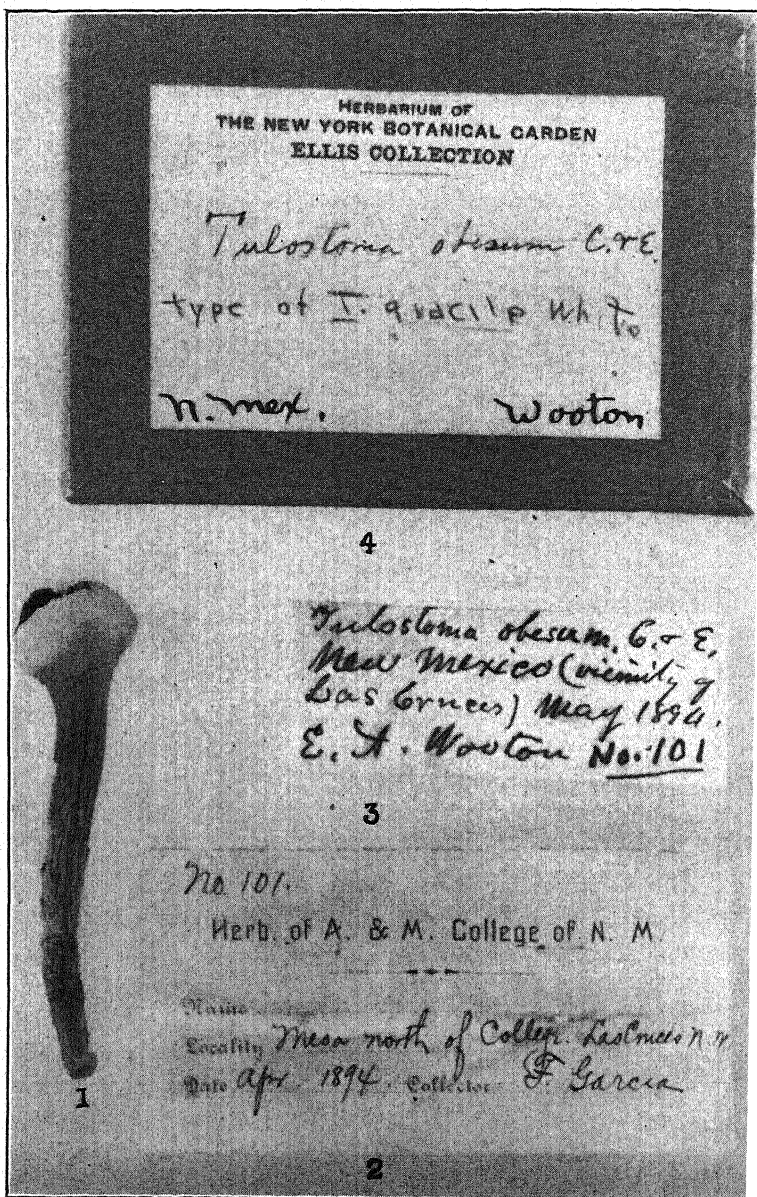 HERBARIUM OF
THE NEW YORK BOTANICAL GARDEN
ELLIS COLLECTION
Tulostoma obesum C. & E.
type of T. gracile White
N. Mex. Wooton
4
Tulostoma obesum. C. & E.
New Mexico (vicinity of
Las Cruces) May 1894.
E. A. Wooton No. 101
3
No 101.
Herb. of A. & M. College of N. M.
Name
Locality Mesa north of College. Las Cruces N M
Date Apr. 1894. Collector F. Garcia
1
2